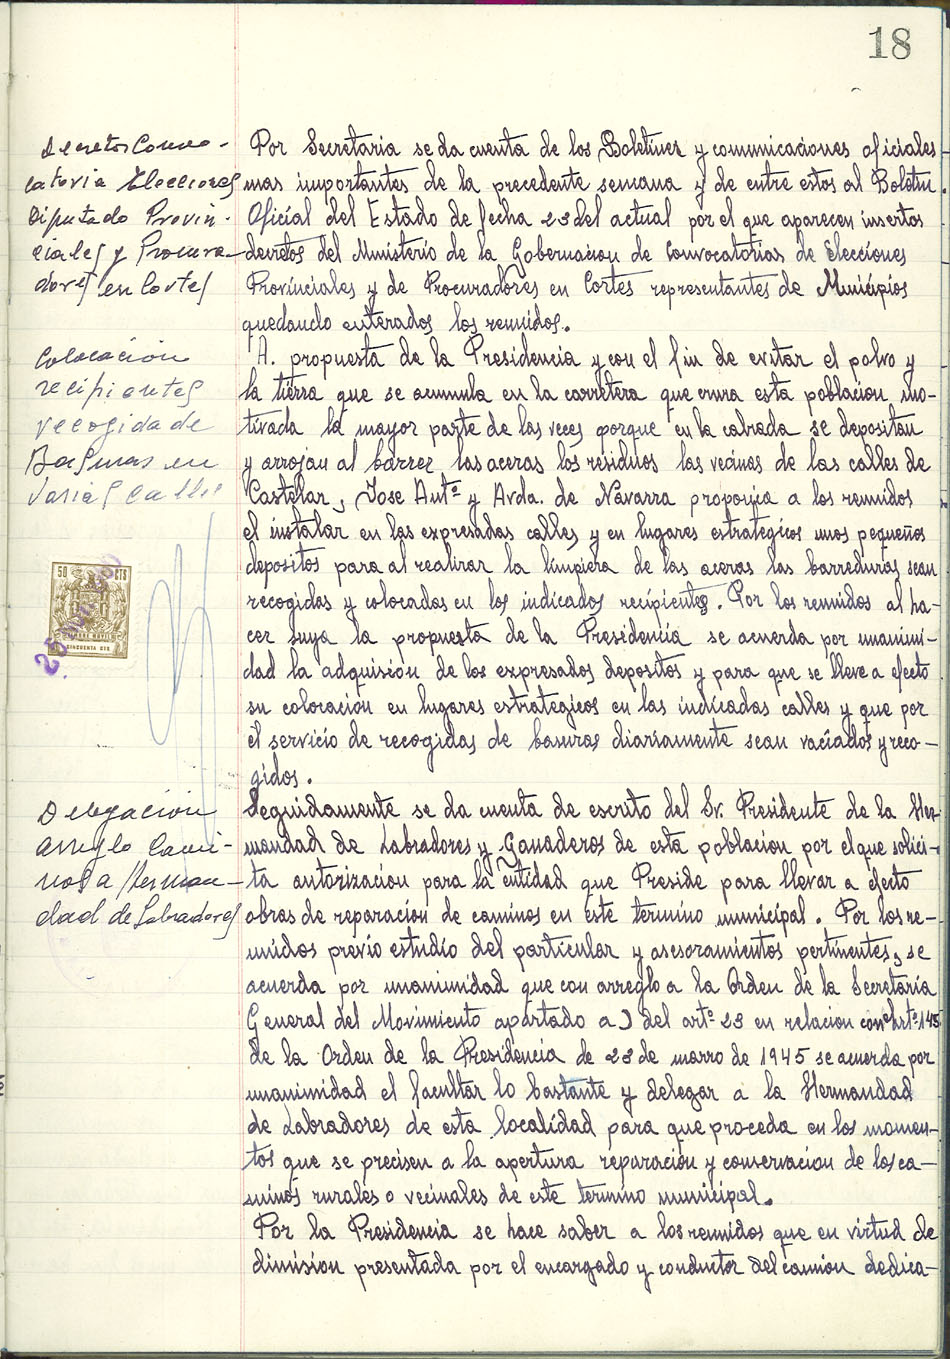 18
Decretos Convo-
catoria Elecciones
Diputado Provin-
ciales y Procura-
dores en Cortes
Por Secretaria se da cuenta de los Boletines y comunicaciones oficiales
mas importantes de la precedente semana y de entre estos al Boletin
Oficial del Estado de fecha 23 del actual por el que aparecen insertos
decretos del Ministerio de la Gobernacion de Convocatorias de Elecciones
Provinciales y de Procuradores en Cortes representantes de Municipios
quedando enterados los reunidos.
Colocación
recipientes
recogida de
Basuras en
varias calles
A. propuesta de la Presidencia y con el fin de evitar el polvo y
la tierra que se acumula en la carretera que cruza esta poblacion mo-
tivada la mayor parte de las veces porque en la calzada se depositan
y arrojan al barrer las aceras los residuos las vecinas de las calles de
Castelar, Jose Antº y Avda. de Navarra proponia a los reunidos
el instalar en las expresadas calles y en lugares estrategicos unos pequeños
depositos para al realizar la limpieza de las aceras las barreduras sean
recogidas y colocadas en los indicados recipientes. Por los reunidos al ha-
cer suya la propuesta de la Presidencia se acuerda por unanimi-
dad la adquisión de los expresados depositos y para que se lleve a efecto
su colocacion en lugares estrategicos en las indicadas calles y que por
el servicio de recogidas de basuras diariamente sean vaciados y reco-
gidos.
50 CTS
TIMBRE MOVIL
CINCUENTA CTS
Delegación
arreglo Cami-
nos a Herman-
dad de Labradores
Seguidamente se da cuenta de escrito del Sr. Presidente de la Her-
mandad de Labradores y Ganaderos de esta poblacion por el que solici-
ta autorizacion para la entidad que Preside para llevar a efecto
obras de reparacion de caminos en este termino municipal. Por los re-
unidos previo estudio del particular y asesoramientos pertinentes, se
acuerda por unanimidad que con arreglo a la Orden de la Secretaria
General del Movimiento apartado a) del artº 23 en relacion con el artº 145
de la Orden de la Presidencia de 23 de marzo de 1945 se acuerda por
unanimidad el facultar lo bastante y delegar a la Hermandad
de Labradores de esta localidad para que proceda en los momen-
tos que se precisen a la apertura reparación y conservacion de los ca-
minos rurales o vecinales de este termino municipal.
Por la Presidencia se hace saber a los reunidos que en virtud de
dimision presentada por el encargado y conductor del camion dedica-